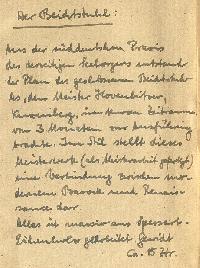 Der Beichtstuhl:
Aus der süddeutschen Praxis
des derzeitigen Seelsorgers entstand
der Plan des geschlossenen Beichtstuh-
les, den Meister
in einem Zeitraum
von 3 Monaten zur Ausführung
brachte. Im Stil stellt dieses
Meisterwerk (als Meisterarbeit gefertigt)
eine Verbindung zwischen mo-
dernem Barock und Renais-
sance dar.
Alles ist massiv aus Spessart-
Eichenholz gearbeitet Gewicht
ca. 15 Ztr.